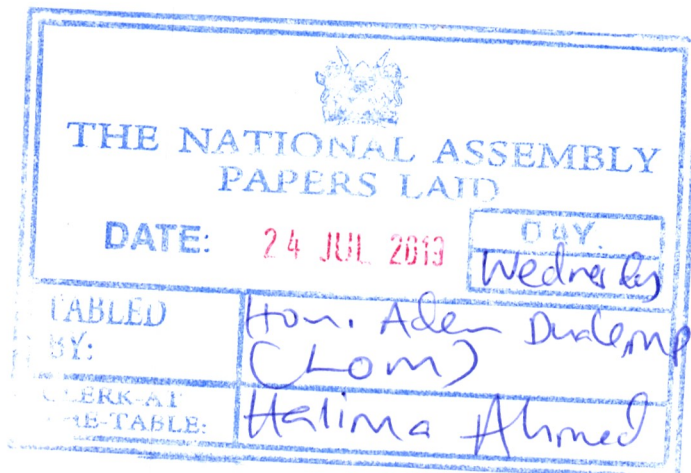 THE NATIONAL ASSEMBLY
PAPERS LAID
DATE: 24 JUL 2019
DAY.
Wednesday
TABLED
BY:
Hon. Aden Duale, MP
(LOM)
CLERK-AT
THE-TABLE:
Halima Ahmed